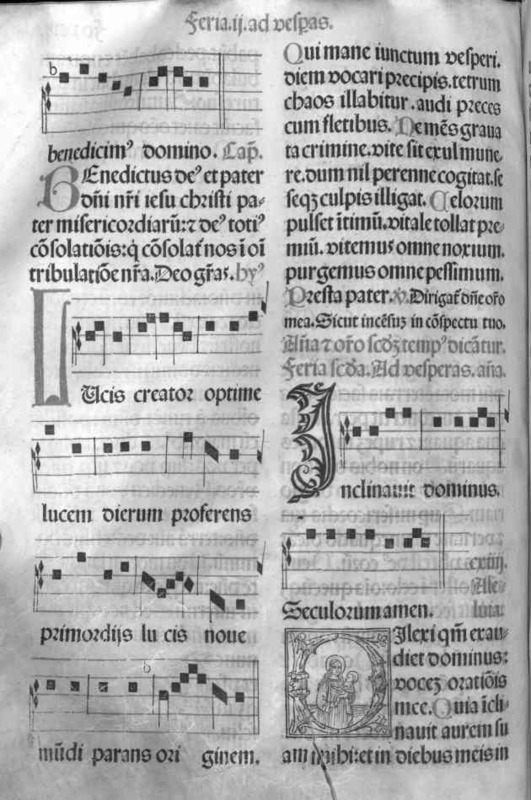 Feria.ij.ad vesp̄as.
benedicim⁹ domino. Cap̄.
BEnedictus de⁹ et pater
dn̄i nr̄i iesu christi pa-
ter misericordiarū:⁊ de⁹ toti⁹
cōsolatiōis:q̇ cōsolat᷑ nos ī oī
tribulatiōe nr̄a.Deo gr̄as.hy⁹
LUcis creator optime
lucem dierum proferens
primordijs lu cis noue
mūdi parans ori ginem.
Qui mane iunctum vesperi.
diem vocari precipis.tetrum
chaos illabitur.audi preces
cum fletibus. Ne mēs graua
ta crimine.vite sit exul mune-
re.dum nil perenne cogitat.se
seqȝ culpis illigat. Celorum
pulset ītimū.vitale tollat pre-
miū.vitemus omne noxium.
purgemus omne pessimum.
Presta pater.℣.Dirigat᷑ dn̄e or̄o
mea.Sicut incēsuȝ in cōspectu tuo.
Añа ⁊ or̄o scd̄ȝ temp⁹ dicāt᷑ur.
Feria scd̄a.Ad vesperas.an̄a.
Inclinauit dominus.
cxiiij.
Seculorum amen. Ale
luia.
DIlexi qm̄ exau-
diet dominus:
voceȝ oratiōis
mee. Quia īcli-
nauit aurem su
am mihi:et in diebus meis in